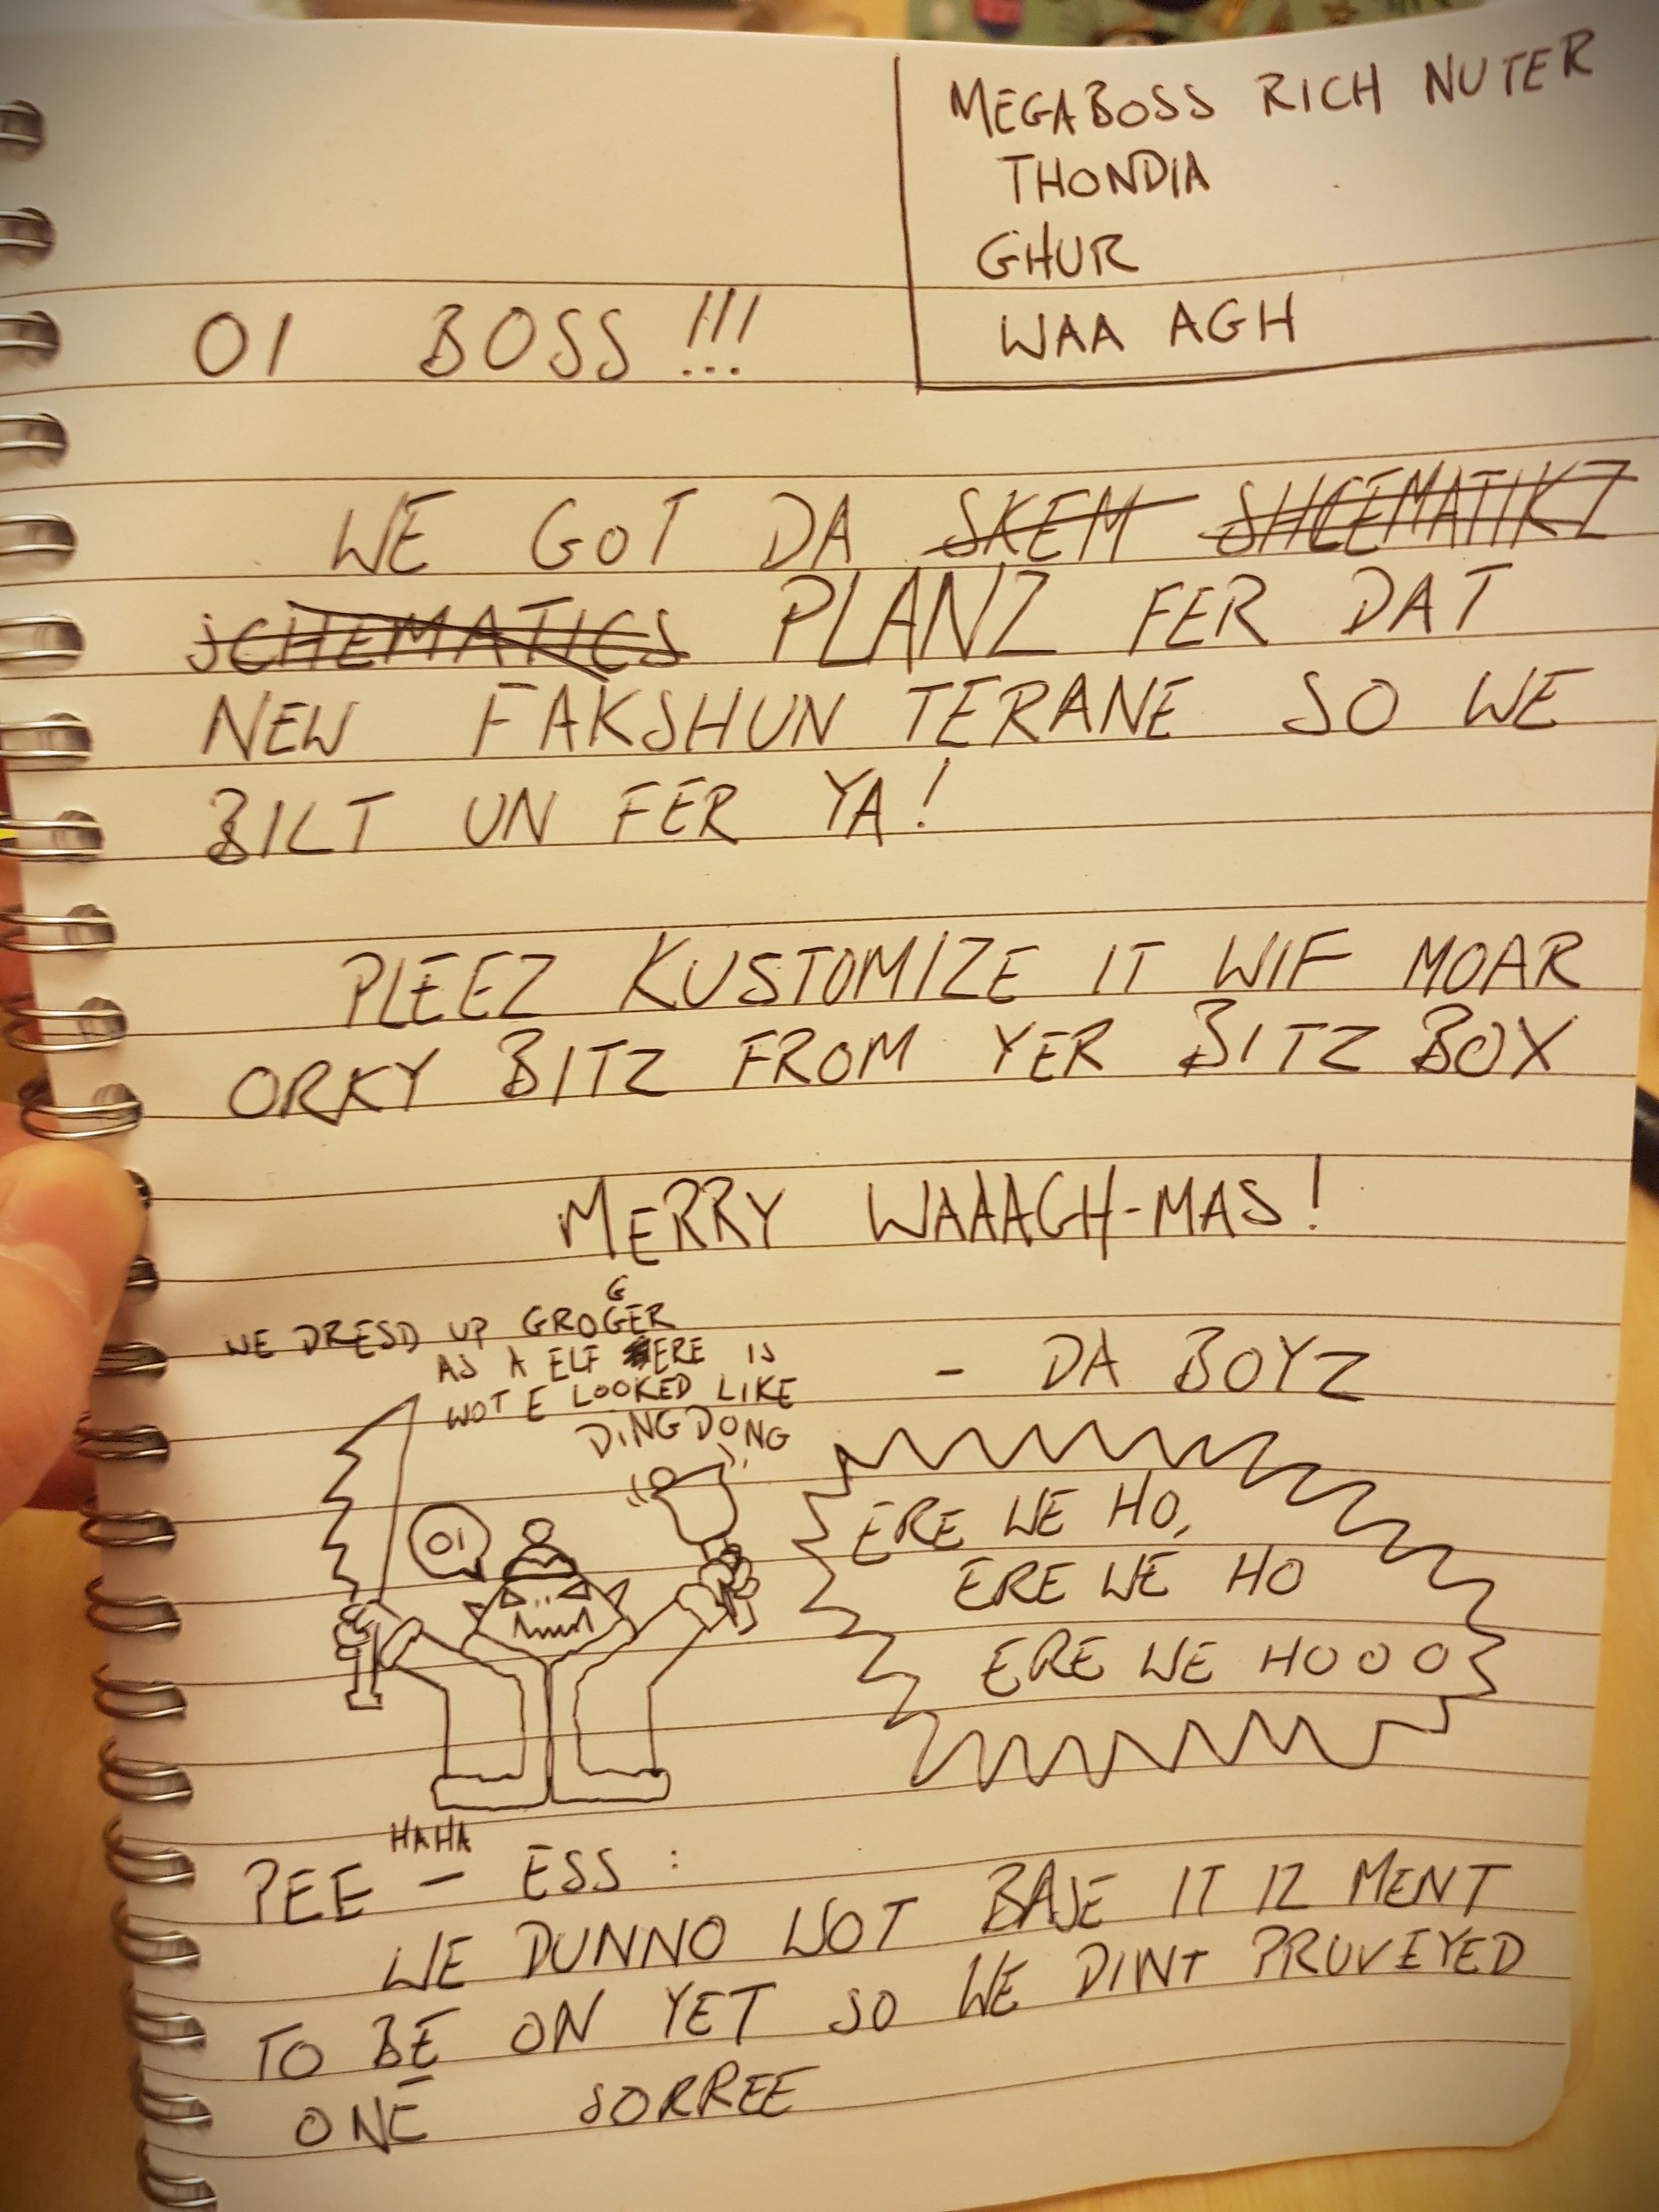 MEGABOSS RICH NUTER
THONDIA
GHUR
WAA AGH
OI BOSS !!!
WE GOT DA SKEM SHCEMATIKZ
SCHEMATICS PLANZ FER DAT
NEW FAKSHUN TERANE SO WE
BILT UN FER YA!
PLEEZ KUSTOMIZE IT WIF MOAR
ORKY BITZ FROM YER BITZ BOX
MERRY WAAAGH-MAS!
G
WE DRESD UP GROGER
AS A ELF ERE IS
WOT E LOOKED LIKE
DING DONG
- DA BOYZ
OI
ERE WE HO,
ERE WE HO
ERE WE HOOO
HAHA
PEE - ESS :
WE DUNNO WOT BASE IT IZ MENT
TO BE ON YET SO WE DINT PRUVEYED
ONE SORREE